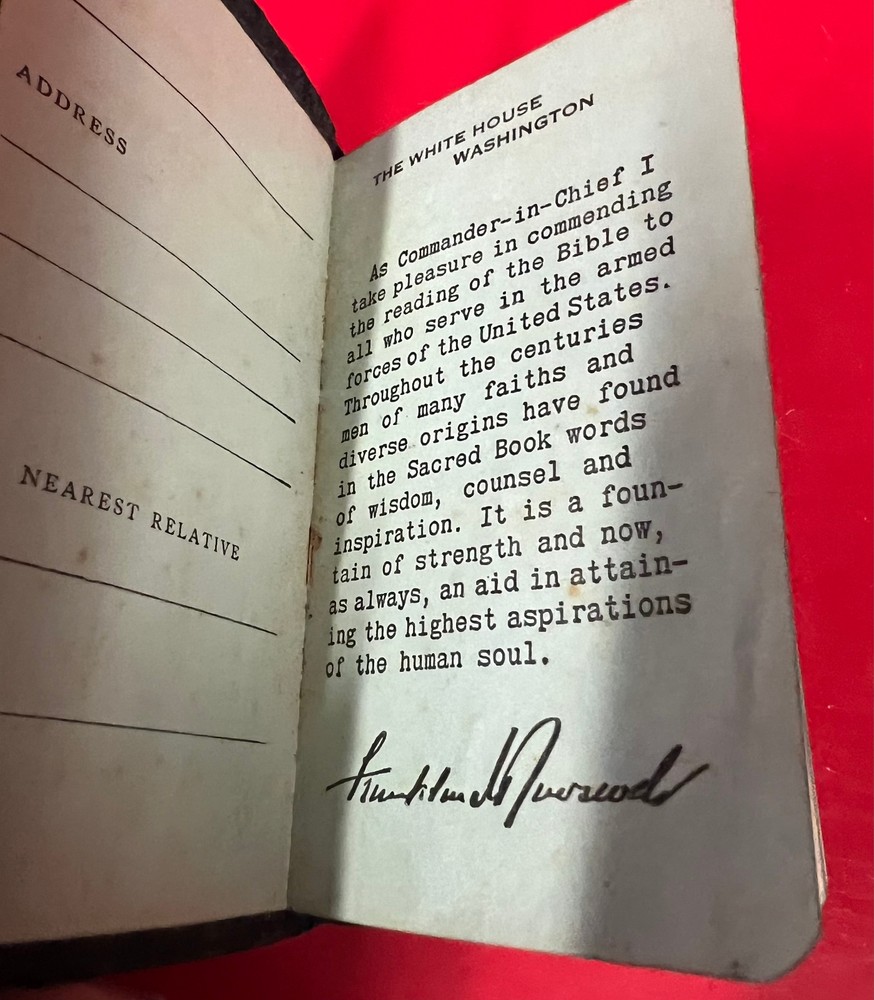 ADDRESS
NEAREST RELATIVE
THE WHITE HOUSE
WASHINGTON
As Commander-in-Chief I
take pleasure in commending
the reading of the Bible to
all who serve in the armed
forces of the United States.
Throughout the centuries
men of many faiths and
diverse origins have found
in the Sacred Book words
of wisdom, counsel and
inspiration. It is a foun-
tain of strength and now,
as always, an aid in attain-
ing the highest aspirations
of the human soul.
Franklin D Roosevelt